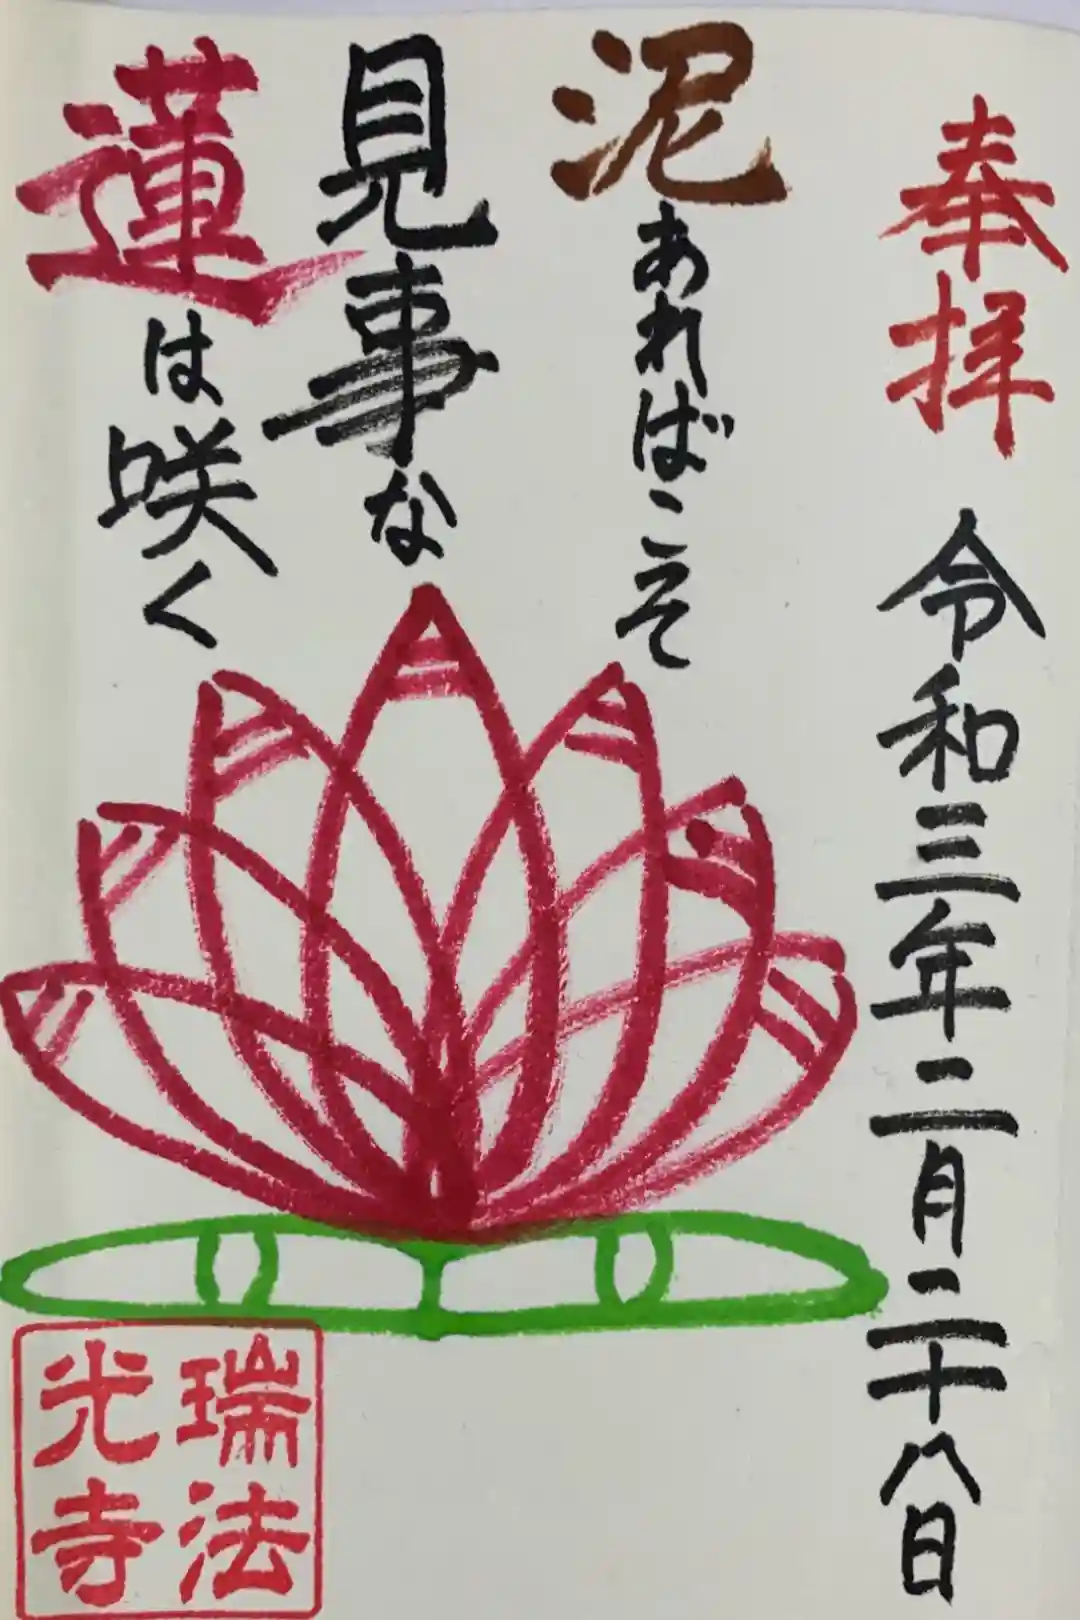 奉拝 令和三年二月二十八日
泥あればこそ
見事な
蓮は咲く
瑞法
光寺